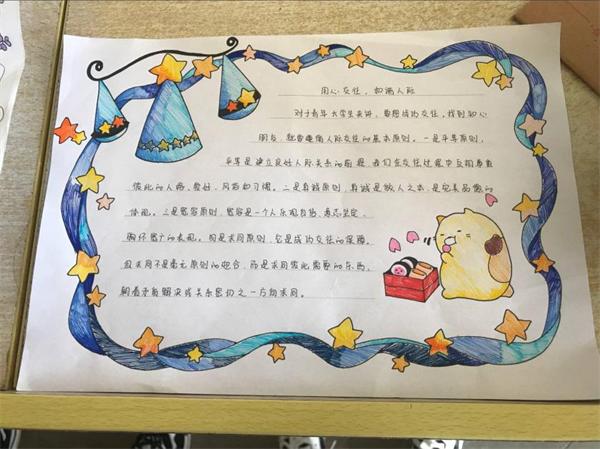 用心交往，和谐人际
对于青年大学生来讲，要想成功交往，找到知心
朋友，就要遵循人际交往的基本原则。一是平等原则，
平等是建立良好人际关系的前提，我们在交往过程中互相尊重
彼此的人格、爱好、风俗和习惯。二是真诚原则，真诚是做人之本，是完美品德的
体现。三是宽容原则，宽容是一个人乐观自信、意志坚定、
胸怀宽广的表现。四是求同原则，它是成功交往的保障。
但求同不是毫无原则的迎合，而是求同彼此需要的东西，
朝着矛盾解决或关系密切之一方向求同。